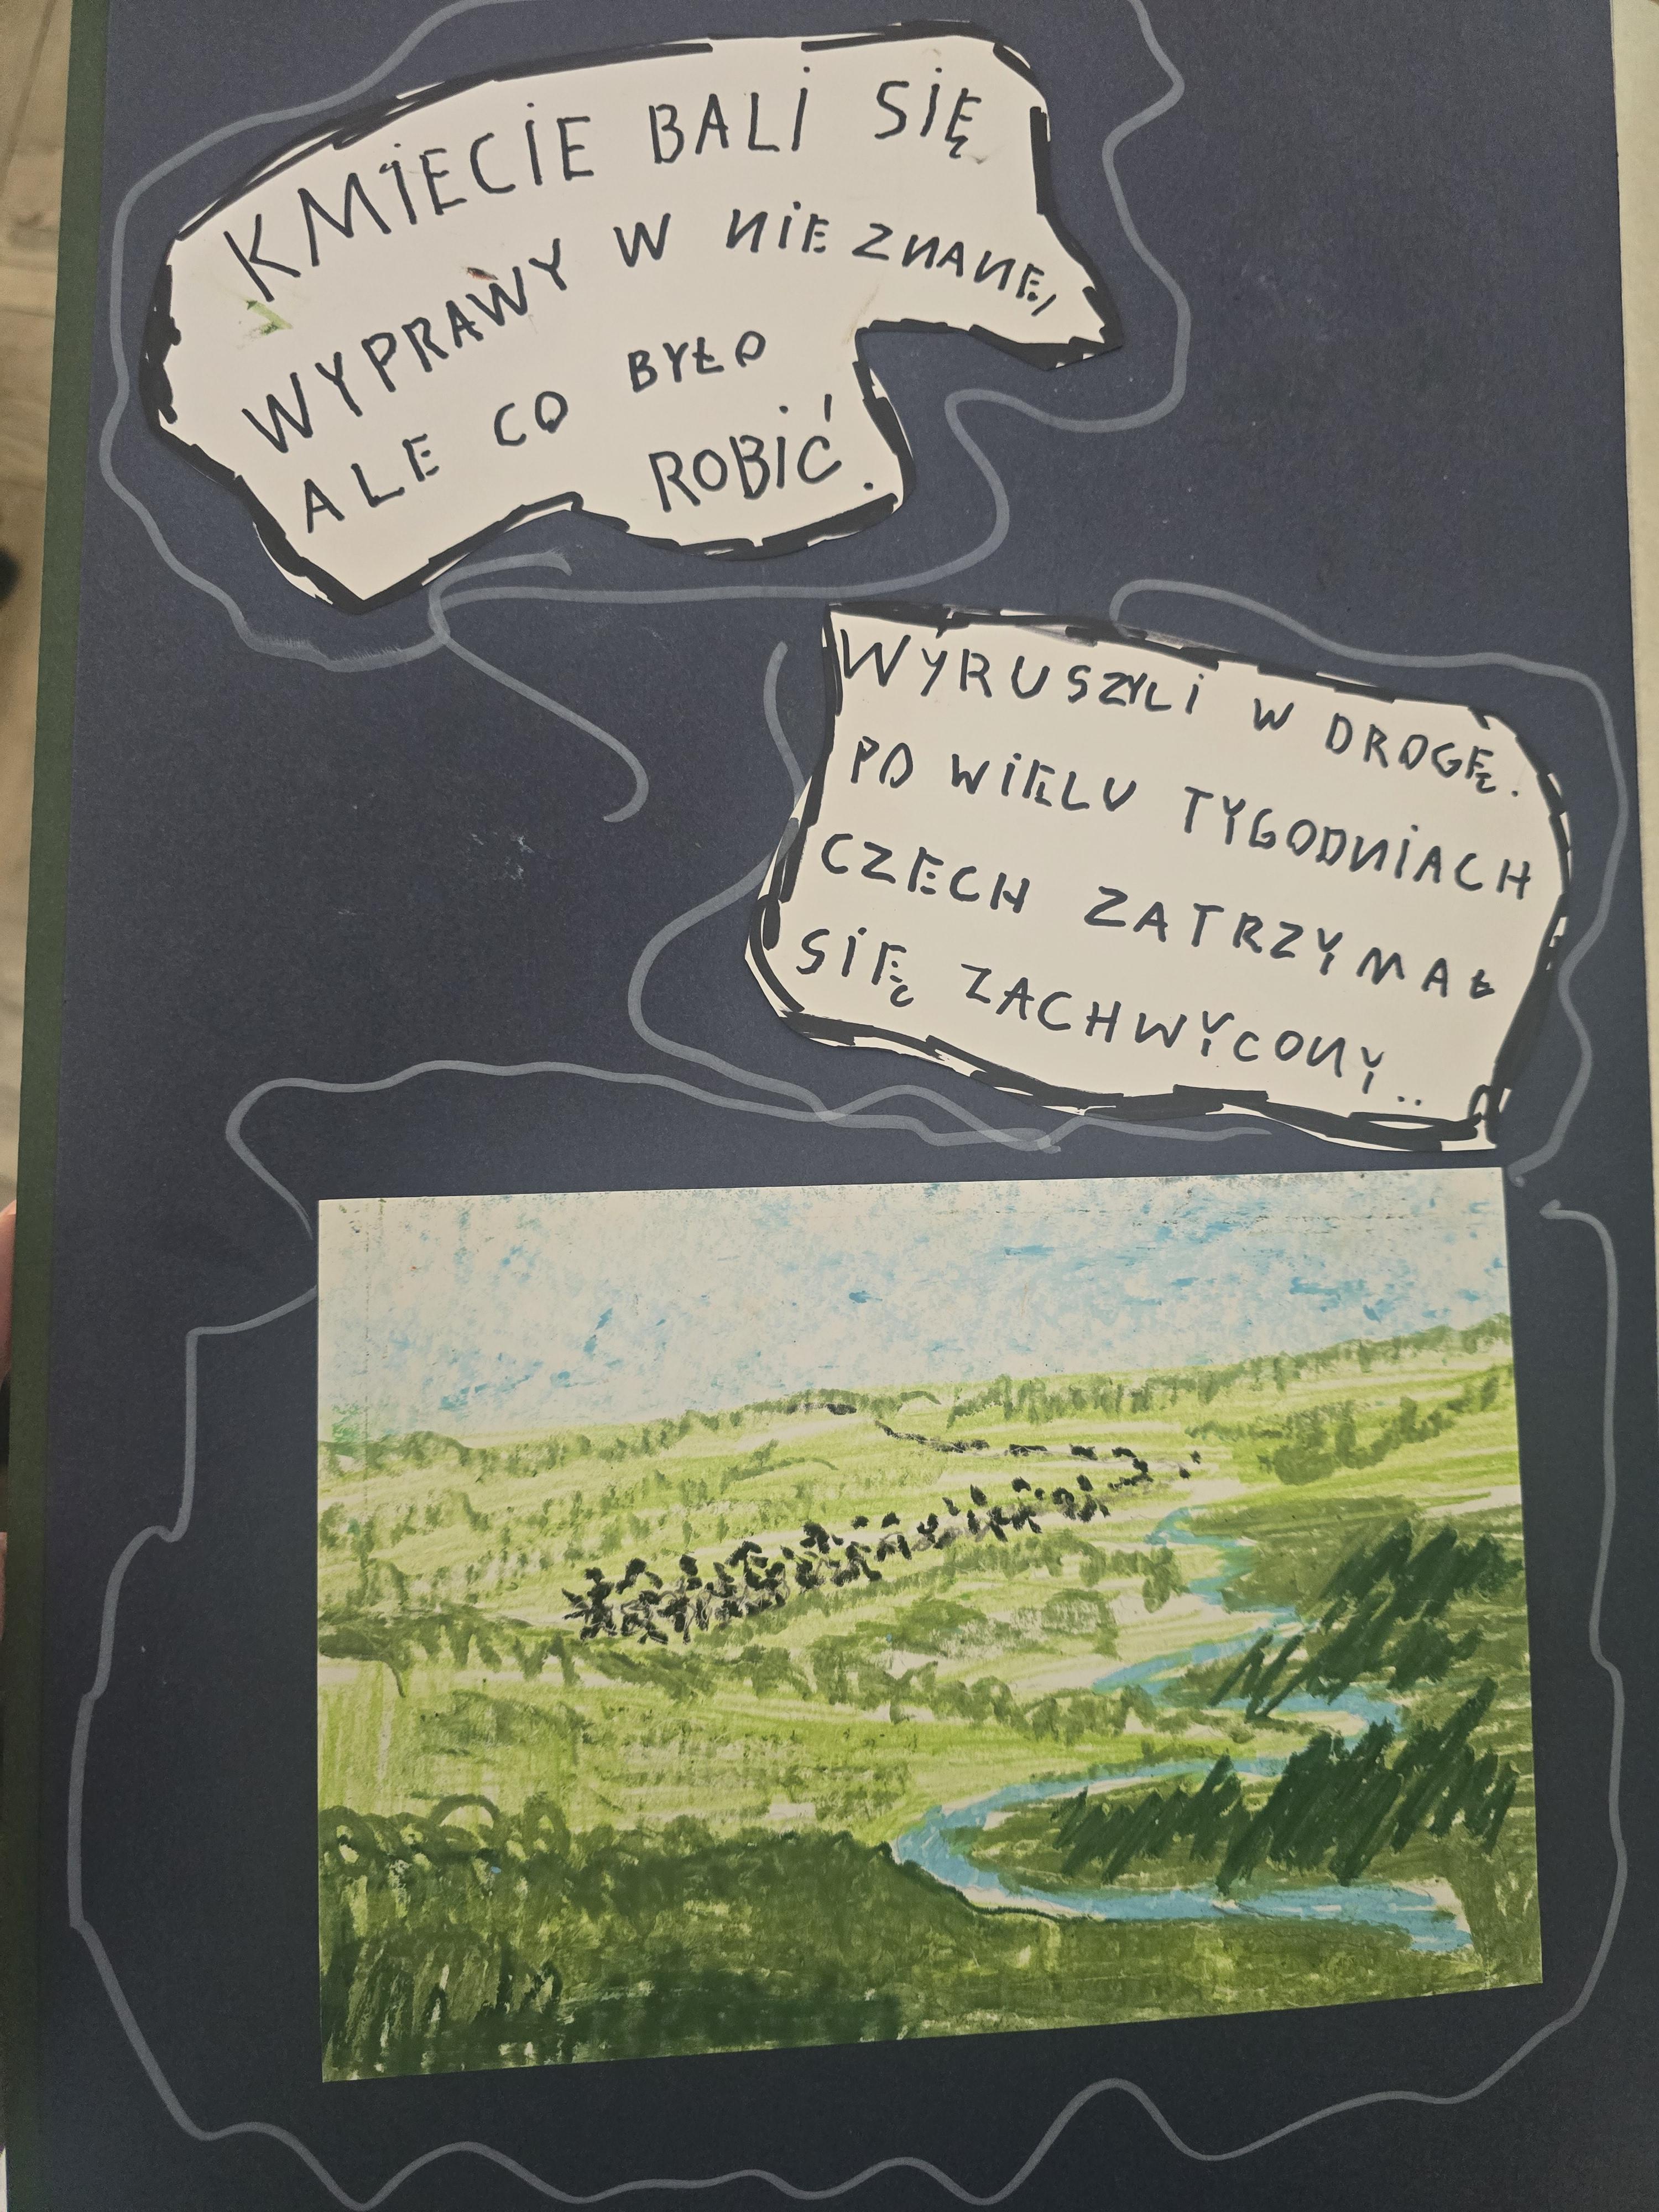 KMIECIE BALI SIĘ
WYPRAWY W NIEZNANE,
ALE CO BYŁO
ROBIĆ.
WYRUSZYLI W DROGĘ.
PO WIELU TYGODNIACH
CZECH ZATRZYMAŁ
SIĘ ZACHWYCONY..